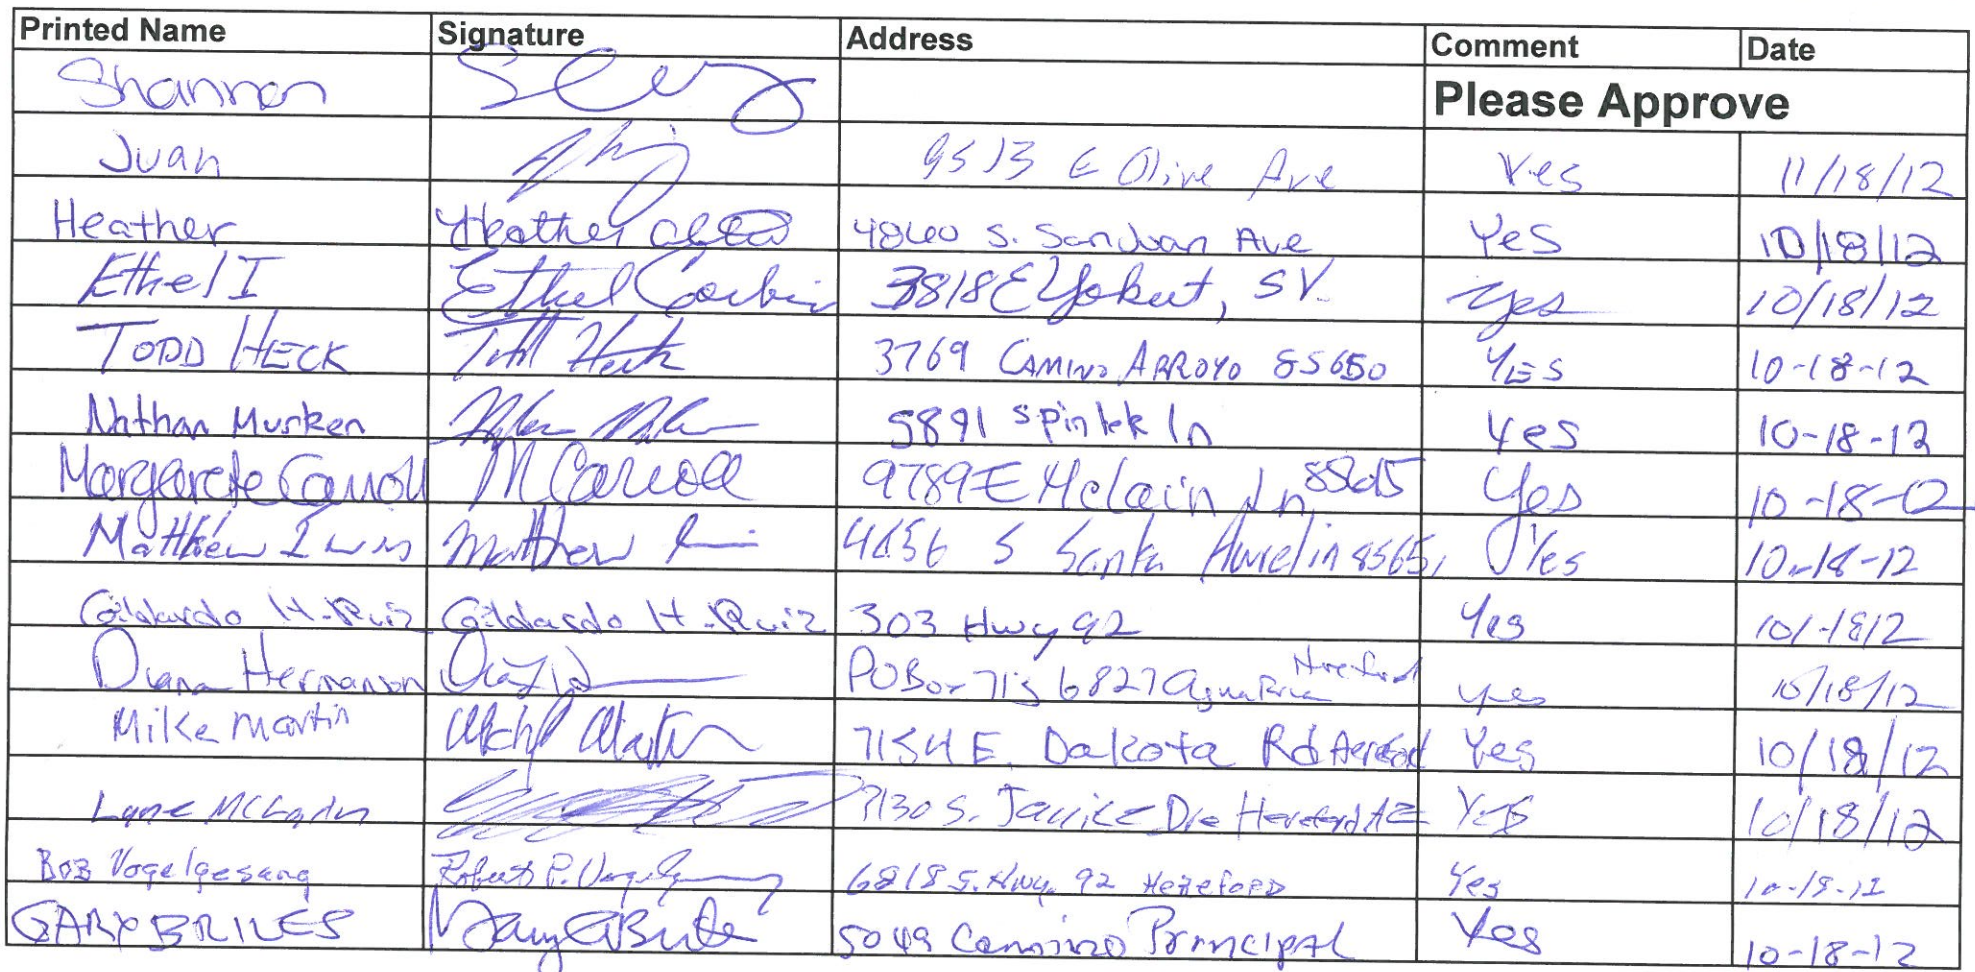 Printed Name Signature Address Comment Date
Shannon Please Approve
Juan 9513 E Olive Ave Yes 11/18/12
Heather Heather 4860 S. San Juan Ave Yes 10/18/12
Ethel I Ethel Corbin 3818 E Yokut, SV. Yes 10/18/12
TODD HECK Todd Heck 3769 CAMINO ARROYO 85650 YES 10-18-12
Nathan Murken 5891 Spintek ln Yes 10-18-12
Margarete Carroll M Carroll 9789 E McLain Ln 85615 Yes 10-18-12
Matthew Matthew S Santa Aurelia Yes 10-18-12
Gildardo H. Ruiz Gildardo H. Ruiz 303 Hwy 92 Yes 10/-1812
Diana Hermanson PO Box 713 6827 Hereford yes 10/18/12
Mike Martin Michl Martin 7154 E. Dakota Rd Hereford Yes 10/18/12
7130 S. Janice Dre Hereford AZ YES 10/18/12
BOB Vogelgesang Robert P. Vogelgesang 6818 S. Hwy. 92 HEREFORD Yes 10-18-12
GARY BRILES Gary Briles 5049 Camino Principal Yes 10-18-12